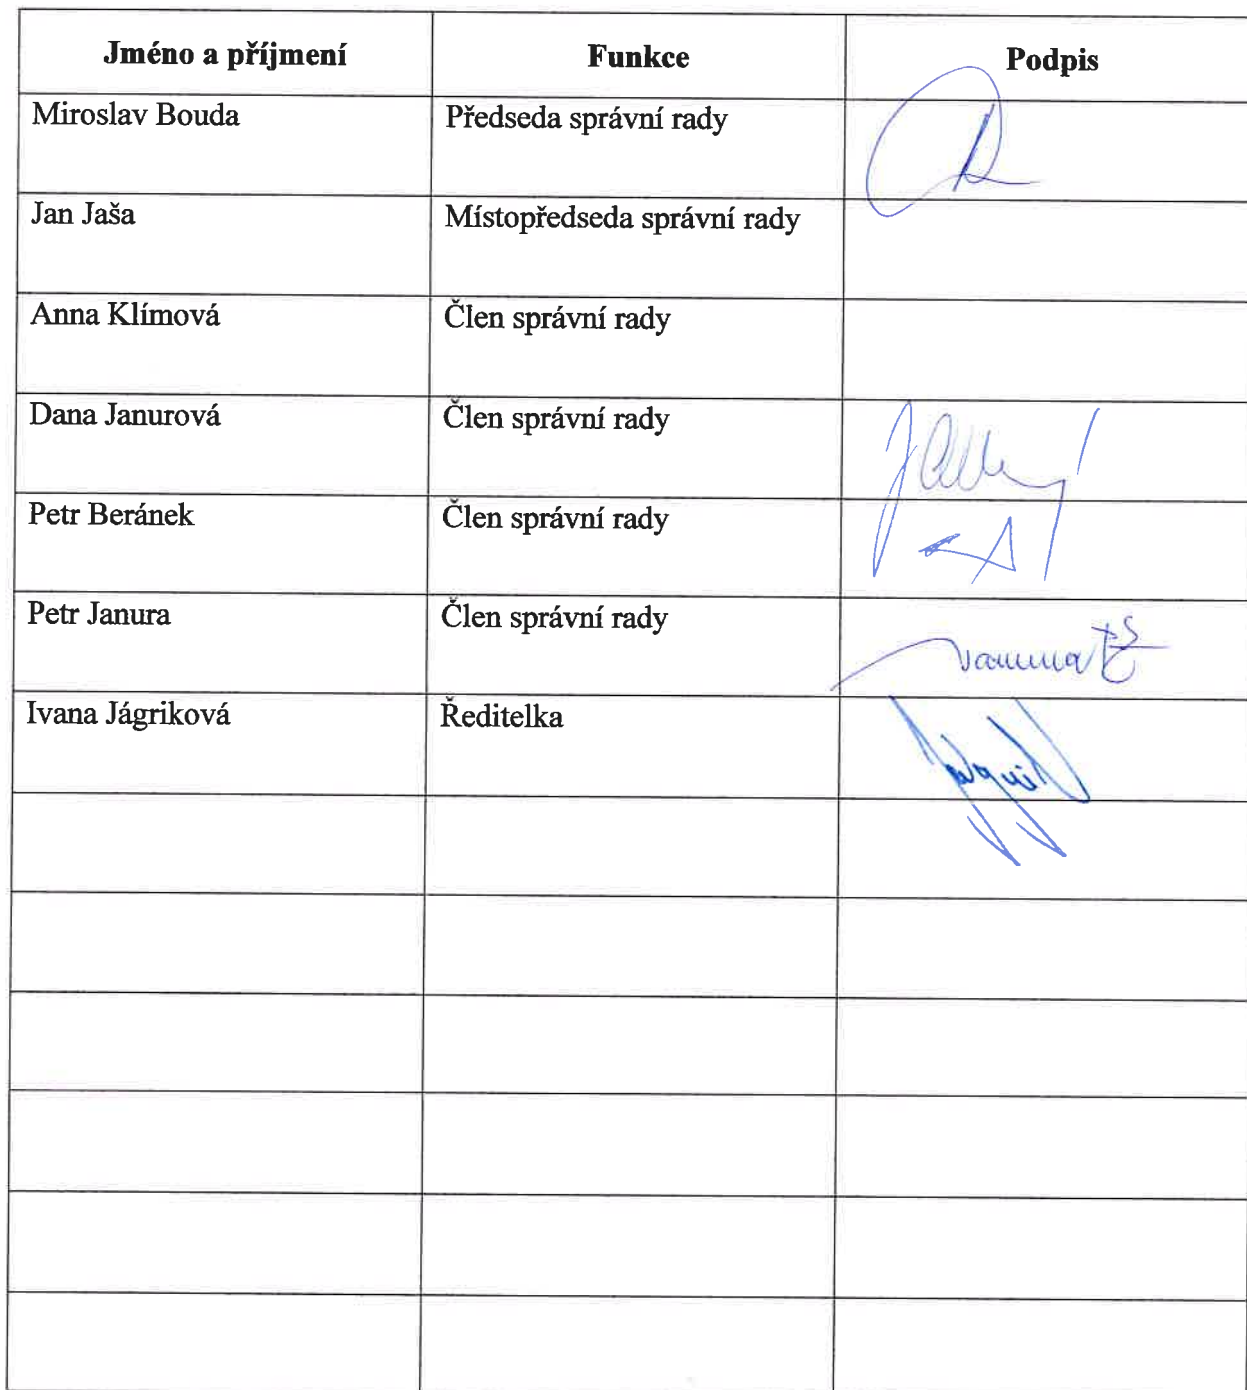 Jméno a příjmení Funkce Podpis
Miroslav Bouda Předseda správní rady
Jan Jaša Místopředseda správní rady
Anna Klímová Člen správní rady
Dana Janurová Člen správní rady
Petr Beránek Člen správní rady
Petr Janura Člen správní rady
Ivana Jágriková Ředitelka